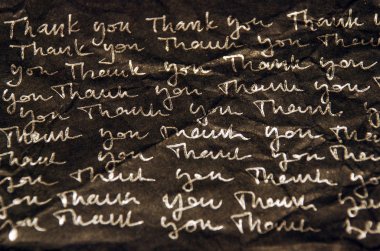 Thank you Thank you Thank
Thank you Thank you Thank
you Thank you Thank you
you Thank you Thank you
you Thank you Thank
Thank you Thank you
Thank you Thank you
you Thank you Thank
you Thank you Thank
you Thank you Thank